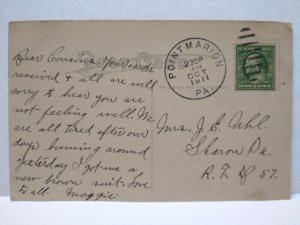 Dear Cousins, Your cards
received & all are well
sorry to hear you are
not feeling well. We
are all tired after our
days running around
yesterday I got me a
new brown suit. Love
to all. Maggie
POINT MARION
230P
OCT
1911
PA.
Mrs. J. E. Ohl.
Sharon Pa.
R. F. D 57.